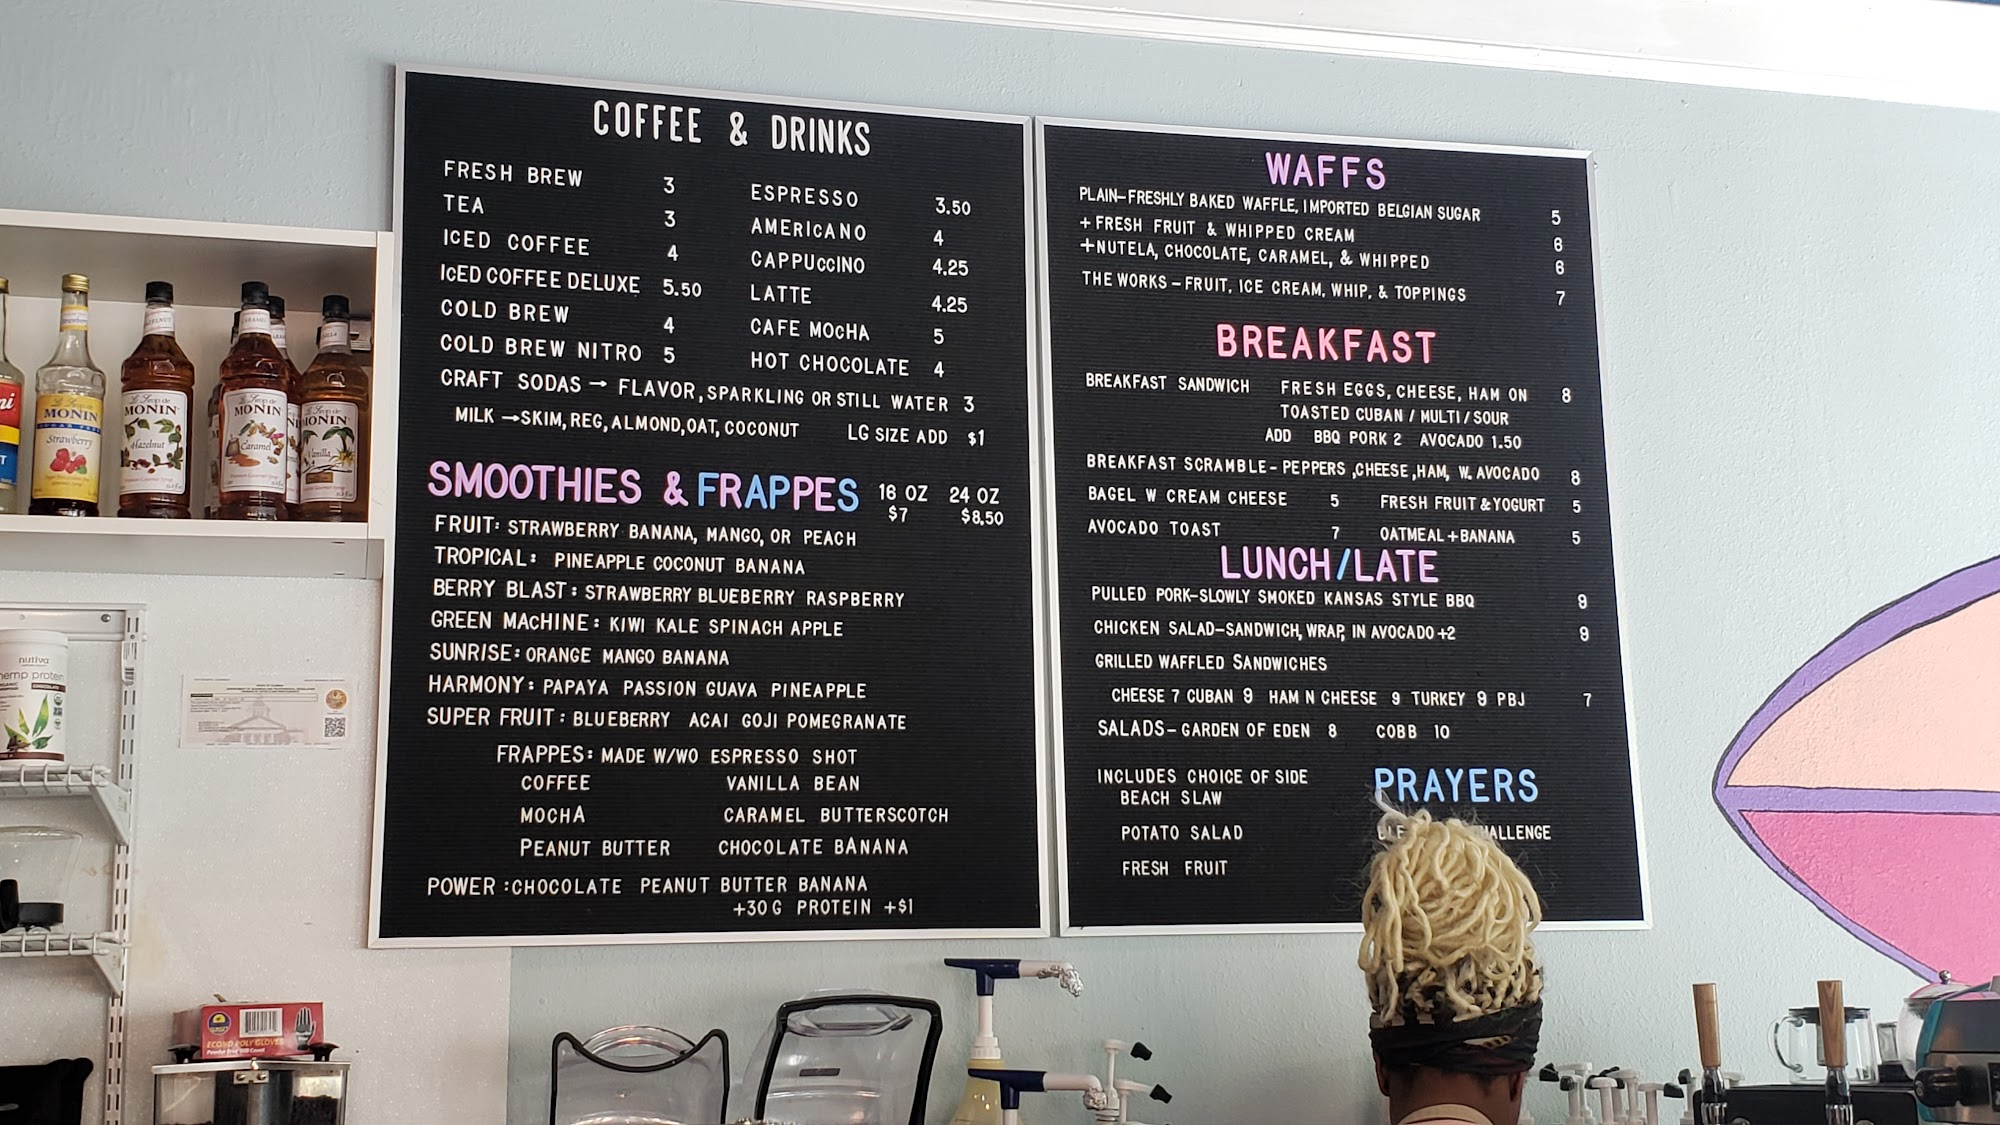 COFFEE & DRINKS
FRESH BREW 3
TEA 3
ICED COFFEE 4
ICED COFFEE DELUXE 5.50
COLD BREW 4
COLD BREW NITRO 5
ESPRESSO 3.50
AMERICANO 4
CAPPUCCINO 4.25
LATTE 4.25
CAFE MOCHA 5
HOT CHOCOLATE 4
CRAFT SODAS → FLAVOR, SPARKLING OR STILL WATER 3
MILK → SKIM, REG, ALMOND, OAT, COCONUT LG SIZE ADD $1
SMOOTHIES & FRAPPES 16 OZ 24 OZ
$7 $8.50
FRUIT: STRAWBERRY BANANA, MANGO, OR PEACH
TROPICAL: PINEAPPLE COCONUT BANANA
BERRY BLAST: STRAWBERRY BLUEBERRY RASPBERRY
GREEN MACHINE: KIWI KALE SPINACH APPLE
SUNRISE: ORANGE MANGO BANANA
HARMONY: PAPAYA PASSION GUAVA PINEAPPLE
SUPER FRUIT: BLUEBERRY ACAI GOJI POMEGRANATE
FRAPPES: MADE W/WO ESPRESSO SHOT
COFFEE VANILLA BEAN
MOCHA CARAMEL BUTTERSCOTCH
PEANUT BUTTER CHOCOLATE BANANA
POWER: CHOCOLATE PEANUT BUTTER BANANA
+30 G PROTEIN +$1
WAFFS
PLAIN-FRESHLY BAKED WAFFLE, IMPORTED BELGIAN SUGAR 5
+FRESH FRUIT & WHIPPED CREAM 6
+NUTELA, CHOCOLATE, CARAMEL, & WHIPPED 6
THE WORKS - FRUIT, ICE CREAM, WHIP, & TOPPINGS 7
BREAKFAST
BREAKFAST SANDWICH FRESH EGGS, CHEESE, HAM ON 8
TOASTED CUBAN / MULTI / SOUR
ADD BBQ PORK 2 AVOCADO 1.50
BREAKFAST SCRAMBLE - PEPPERS ,CHEESE ,HAM, W. AVOCADO 8
BAGEL W CREAM CHEESE 5 FRESH FRUIT & YOGURT 5
AVOCADO TOAST 7 OATMEAL + BANANA 5
LUNCH/LATE
PULLED PORK-SLOWLY SMOKED KANSAS STYLE BBQ 9
CHICKEN SALAD-SANDWICH, WRAP, IN AVOCADO +2 9
GRILLED WAFFLED SANDWICHES
CHEESE 7 CUBAN 9 HAM N CHEESE 9 TURKEY 9 PBJ 7
SALADS - GARDEN OF EDEN 8 COBB 10
INCLUDES CHOICE OF SIDE
BEACH SLAW
POTATO SALAD
FRESH FRUIT
PRAYERS
MONIN
Strawberry
MONIN
Hazelnut
MONIN
Caramel
MONIN
Vanilla
nutiva
hemp protein
ECONO POLY GLOVES